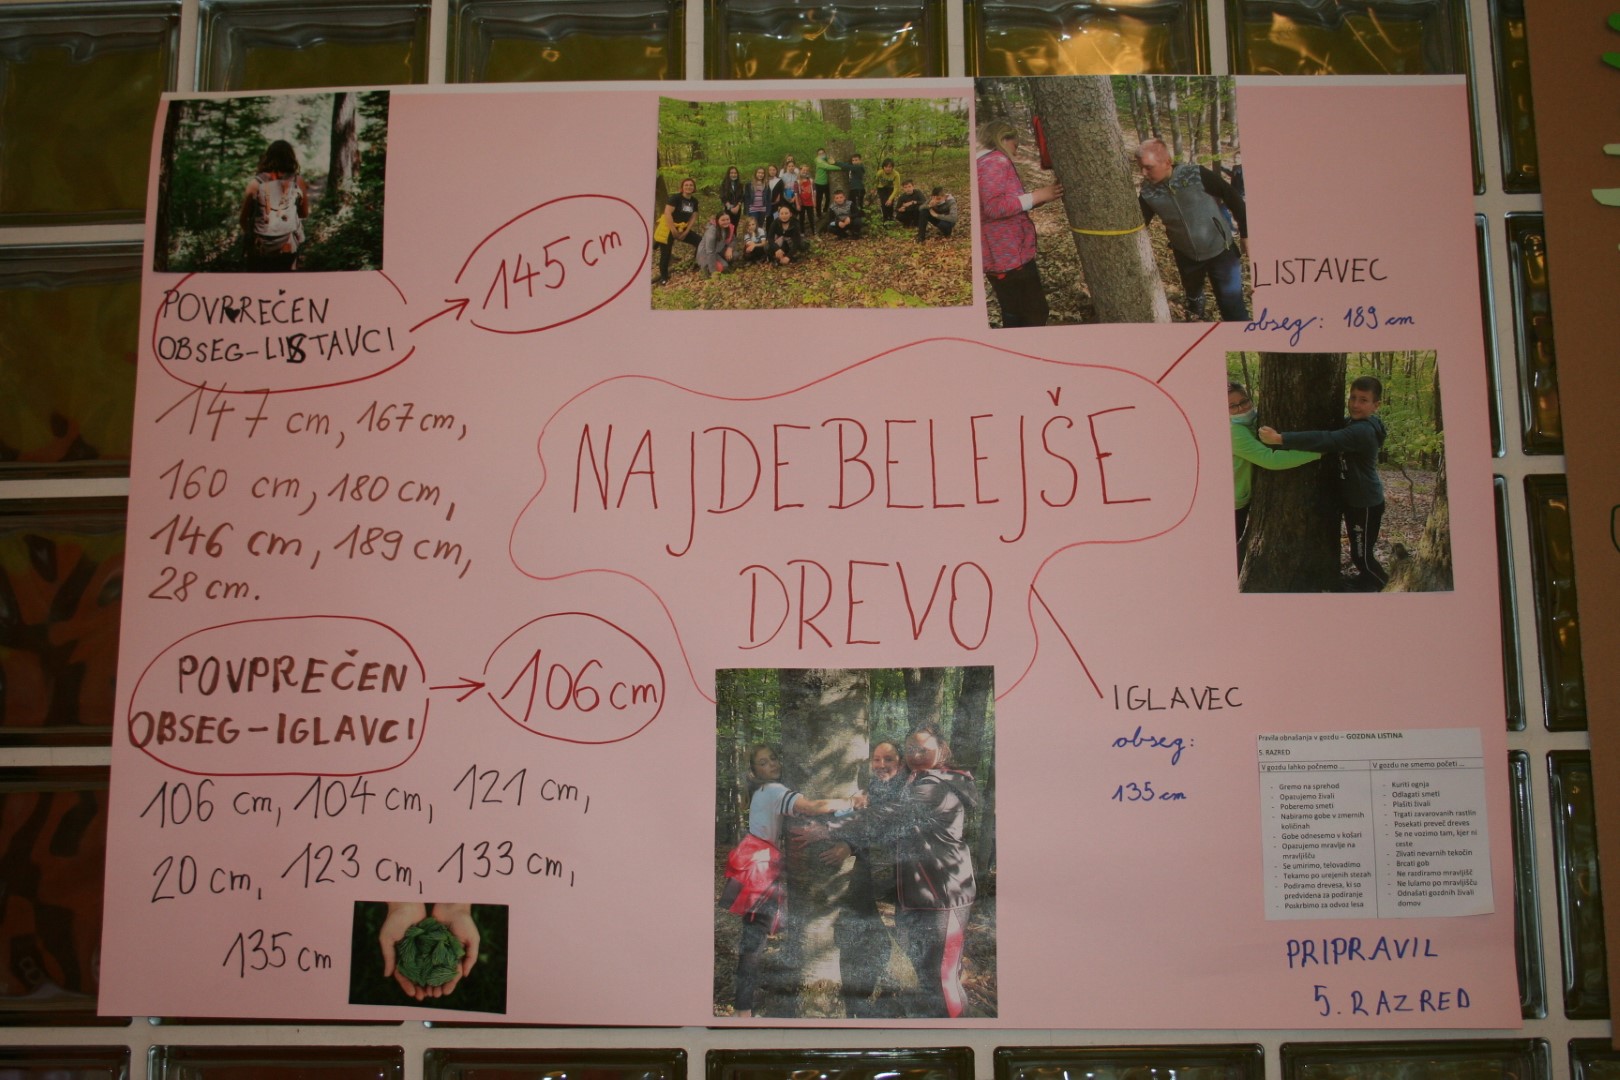 POVPREČEN
OBSEG-LISTAVCI
145 cm
147 cm, 167 cm,
160 cm, 180 cm,
146 cm, 189 cm,
28 cm.
POVPREČEN
OBSEG-IGLAVCI
106 cm
106 cm, 104 cm, 121 cm,
20 cm, 123 cm, 133 cm,
135 cm
NAJDEBELEJŠE
DREVO
LISTAVEC
obseg: 189 cm
IGLAVEC
obseg:
135 cm
Pravila obnašanja v gozdu – GOZDNA LISTINA
5. RAZRED
V gozdu lahko počnemo ...
- Gremo na sprehod
- Opazujemo živali
- Poberemo smeti
- Nabiramo gobe v zmernih
količinah
- Gobe odnesemo v košari
- Opazujemo mravlje na
mravljišču
- Se umirimo, telovadimo
- Tekamo po urejenih stezah
- Podiramo drevesa, ki so
predvidena za podiranje
- Poskrbimo za odvoz lesa
V gozdu ne smemo početi ...
- Kuriti ognja
- Odlagati smeti
- Plašiti živali
- Trgati zavarovanih rastlin
- Posekati preveč dreves
- Se ne vozimo tam, kjer ni
ceste
- Zlivati nevarnih tekočin
- Brcati gob
- Ne razdiramo mravljišč
- Ne lulamo po mravljišču
- Odnašati gozdnih živali
domov
PRIPRAVIL
5. RAZRED